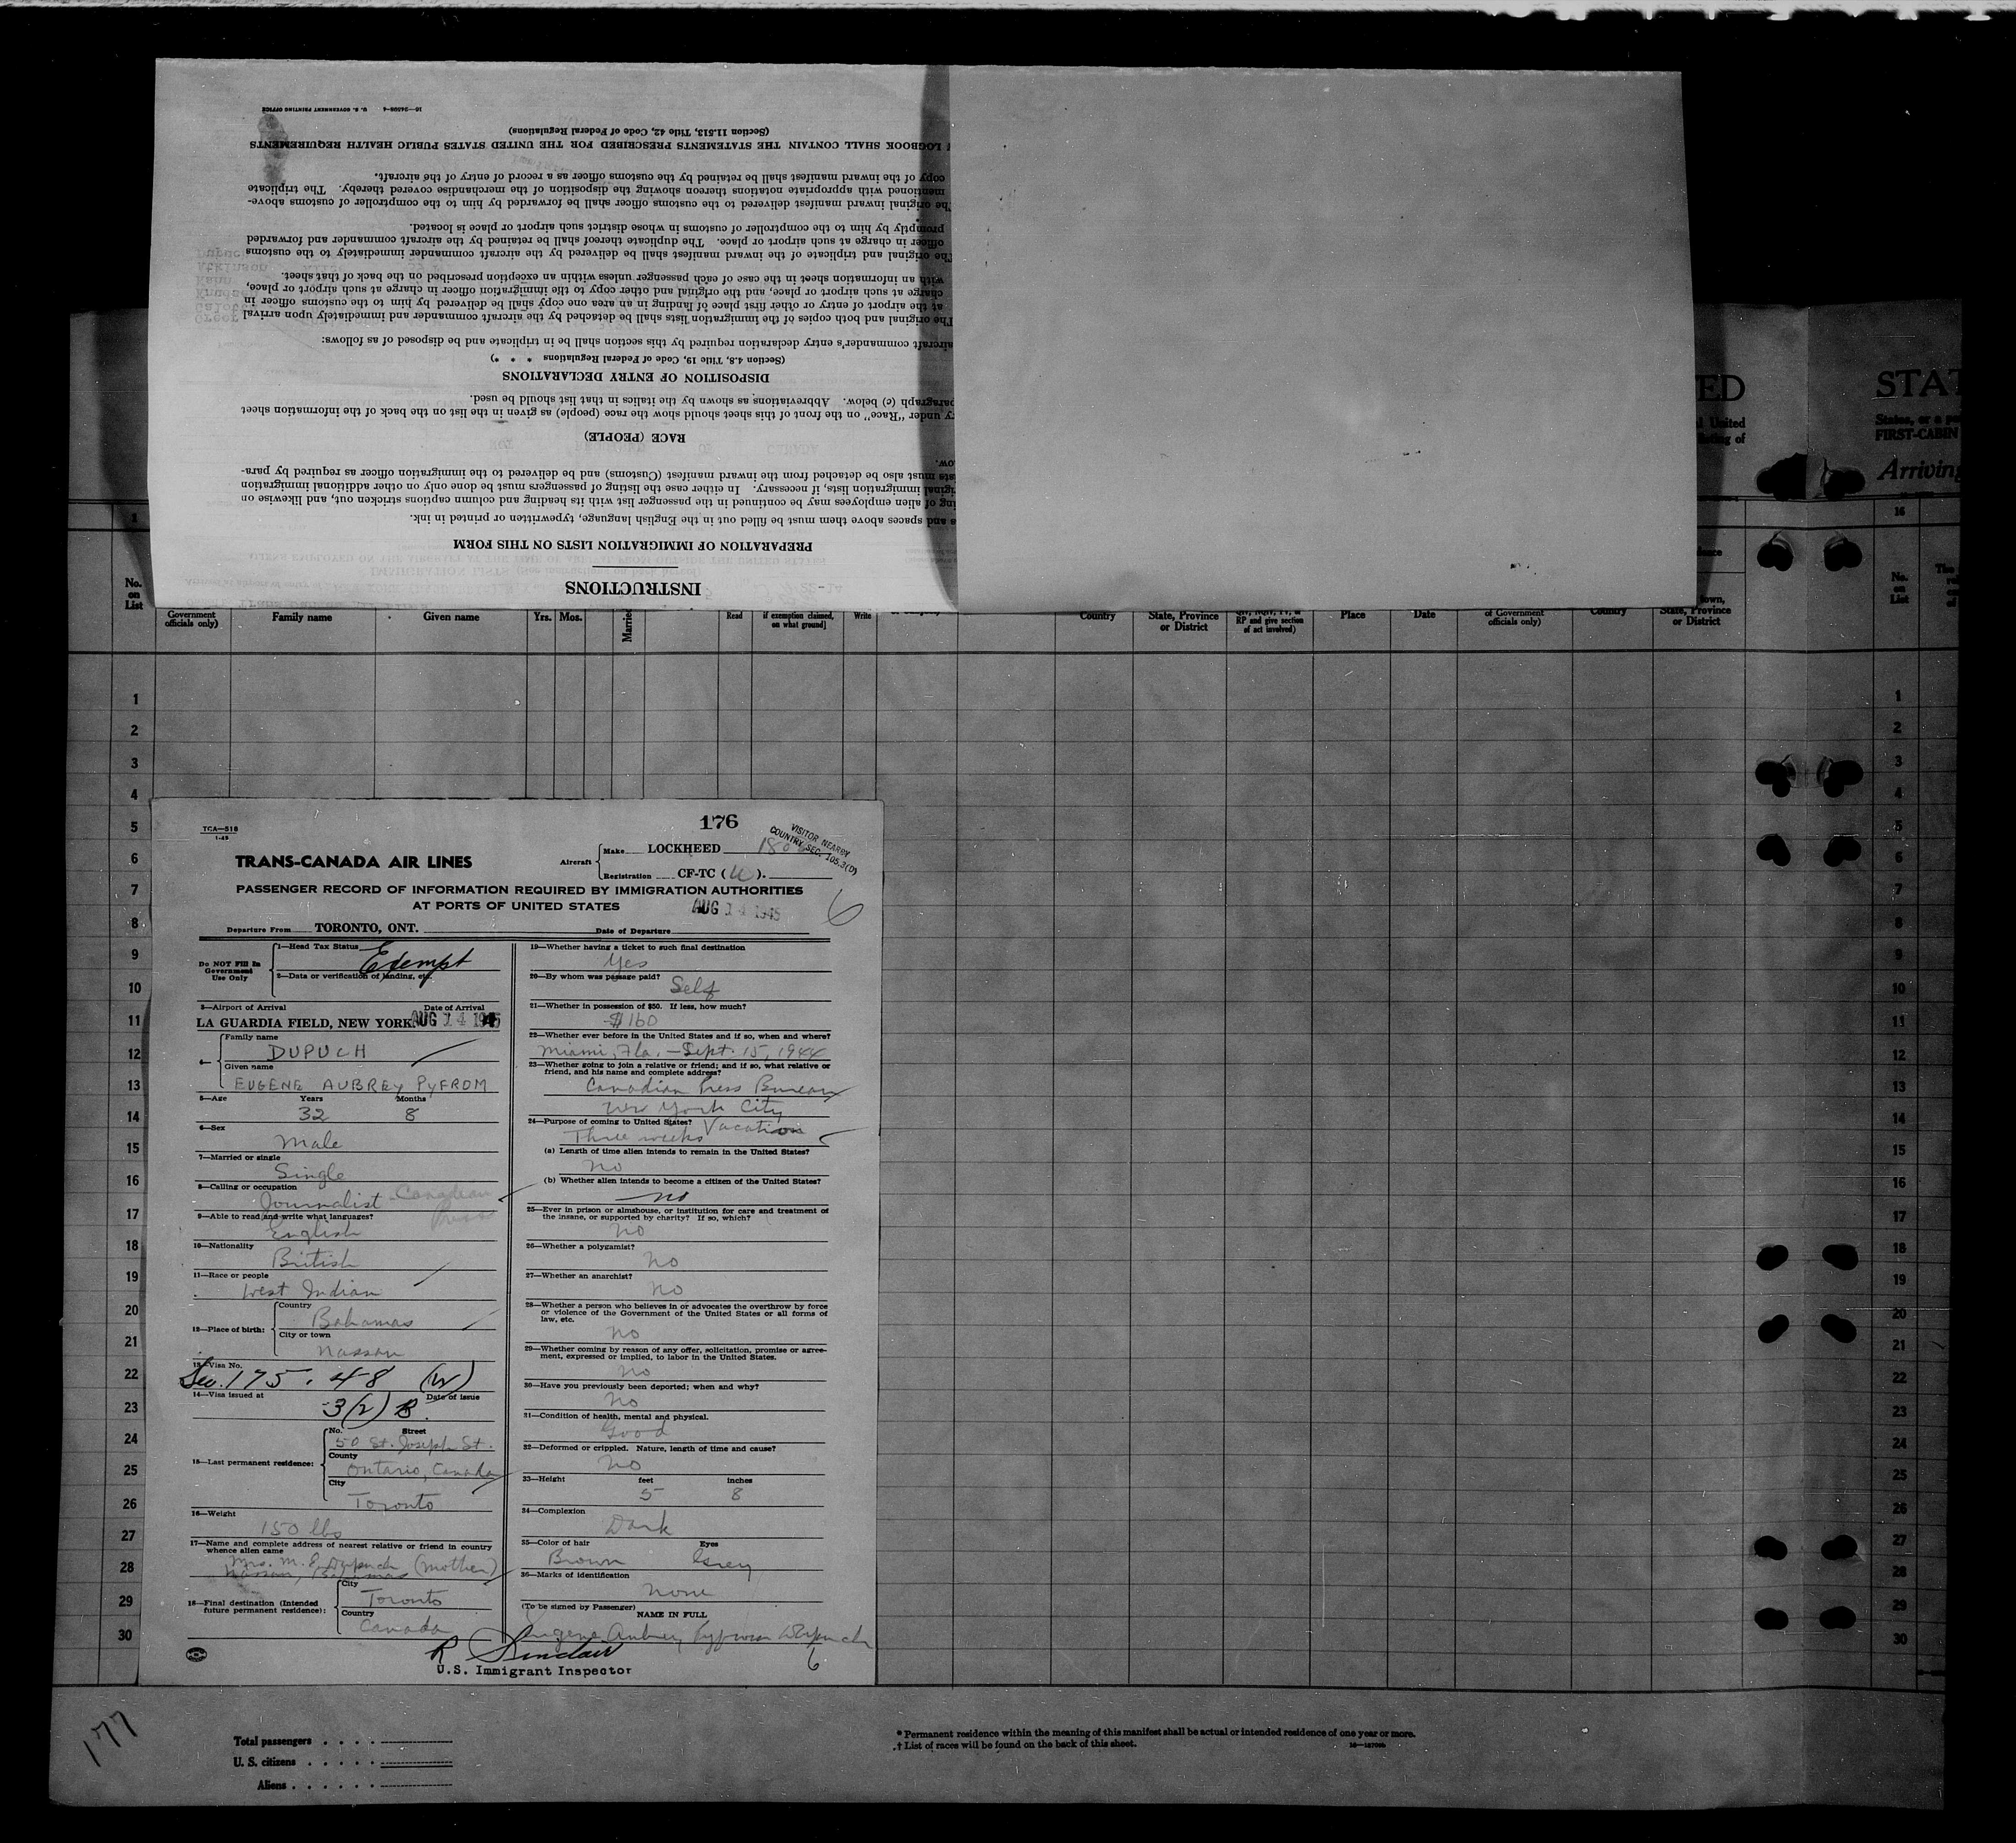 16—24598-4 U. S. GOVERNMENT PRINTING OFFICE
(Section 11.513, Title 42, Code of Federal Regulations)
LOGBOOK SHALL CONTAIN THE STATEMENTS PRESCRIBED FOR THE UNITED STATES PUBLIC HEALTH REQUIREMENTS
copy of the inward manifest shall be retained by the customs officer as a record of entry of the aircraft.
mentioned with appropriate notations thereon showing the disposition of the merchandise covered thereby. The triplicate
The original inward manifest delivered to the customs officer shall be forwarded by him to the comptroller of customs above-
promptly by him to the comptroller of customs in whose district such airport or place is located.
officer in charge at such airport or place. The duplicate thereof shall be retained by the aircraft commander and forwarded
The original and triplicate of the inward manifest shall be delivered by the aircraft commander immediately to the customs
with an information sheet in the case of each passenger unless within an exception prescribed on the back of that sheet.
charge at such airport or place, and the original and other copy to the immigration officer in charge at such airport or place,
at the airport of entry or other first place of landing in an area one copy shall be delivered by him to the customs officer in
The original and both copies of the immigration lists shall be detached by the aircraft commander and immediately upon arrival
aircraft commander's entry declaration required by this section shall be in triplicate and be disposed of as follows:
(Section 4.8, Title 19, Code of Federal Regulations * * *)
DISPOSITION OF ENTRY DECLARATIONS
paragraph (c) below. Abbreviations as shown by the italics in that list should be used.
ry under "Race" on the front of this sheet should show the race (people) as given in the list on the back of the information sheet
RACE (PEOPLE)
ow.
sts must also be detached from the inward manifest (Customs) and be delivered to the immigration officer as required by para-
iginal immigration lists, if necessary. In either case the listing of passengers must be done only on other additional immigration
ing of alien employees may be continued in the passenger list with its heading and column captions stricken out, and likewise on
s and spaces above them must be filled out in the English language, typewritten or printed in ink.
PREPARATION OF IMMIGRATION LISTS ON THIS FORM
INSTRUCTIONS
ED
STAT
United
States, or a
FIRST-CABIN
Arriving
1
16
No. on List
Government officials only)
Family name
Given name
Yrs.
Mos.
Married
Read
if exemption claimed, on what ground]
Write
Country
State, Province or District
RP and give section of act involved)
Place
Date
of Government officials only)
Country
State, Province or District
No. on List
1 1
2 2
3 3
4 4
5 5
6 6
7 7
8 8
9 9
10 10
11 11
12 12
13 13
14 14
15 15
16 16
17 17
18 18
19 19
20 20
21 21
22 22
23 23
24 24
25 25
26 26
27 27
28 28
29 29
30 30
176
TCA—518
1-45
VISITOR NEARBY
COUNTRY SEC. 105.3(D)
TRANS-CANADA AIR LINES
Aircraft
Make LOCKHEED
Registration CF-TC ( ).
PASSENGER RECORD OF INFORMATION REQUIRED BY IMMIGRATION AUTHORITIES
AT PORTS OF UNITED STATES
AUG 14 1945
6
Departure From TORONTO, ONT. Date of Departure
Do NOT Fill In Government Use Only
1—Head Tax Status Exempt
2—Data or verification of landing, etc.
3—Airport of Arrival Date of Arrival
LA GUARDIA FIELD, NEW YORK AUG 14 1945
4—
Family name
DUPUCH
Given name
EUGENE AUBREY PYFROM
5—Age Years Months
32 8
6—Sex
Male
7—Married or single
Single
8—Calling or occupation
Journalist Canadian Press
9—Able to read and write what languages?
English
10—Nationality
British
11—Race or people
West Indian
12—Place of birth:
Country
Bahamas
City or town
Nassau
13—Visa No.
Sec. 175.48 (W)
14—Visa issued at Date of issue
3(2) B.
15—Last permanent residence:
No. Street
50 St. Joseph St.
County
Ontario, Canada
City
Toronto
16—Weight
150 lbs
17—Name and complete address of nearest relative or friend in country
whence alien came
Mrs. M. E. Dupuch (mother)
Nassau, Bahamas
18—Final destination (Intended future permanent residence):
City
Toronto
Country
Canada
19—Whether having a ticket to such final destination
Yes
20—By whom was passage paid?
Self
21—Whether in possession of $50. If less, how much?
$160
22—Whether ever before in the United States and if so, when and where?
Miami, Fla. – Sept. 15, 1944
23—Whether going to join a relative or friend; and if so, what relative or
friend, and his name and complete address?
Canadian Press Bureau
New York City
24—Purpose of coming to United States? Vacation
Three weeks
(a) Length of time alien intends to remain in the United States?
no
(b) Whether alien intends to become a citizen of the United States?
no
25—Ever in prison or almshouse, or institution for care and treatment of
the insane, or supported by charity? If so, which?
no
26—Whether a polygamist?
no
27—Whether an anarchist?
no
28—Whether a person who believes in or advocates the overthrow by force
or violence of the Government of the United States or all forms of
law, etc.
no
29—Whether coming by reason of any offer, solicitation, promise or agree-
ment, expressed or implied, to labor in the United States.
no
30—Have you previously been deported; when and why?
No
31—Condition of health, mental and physical.
Good
32—Deformed or crippled. Nature, length of time and cause?
No
33—Height feet inches
5 8
34—Complexion
Dark
35—Color of hair Eyes
Brown Grey
36—Marks of identification
none
(To be signed by Passenger) NAME IN FULL
Eugene Aubrey Pyfrom Dupuch
R Sinclair
6
U.S. Immigrant Inspector
177
Total passengers
U. S. citizens
Aliens
* Permanent residence within the meaning of this manifest shall be actual or intended residence of one year or more.
† List of races will be found on the back of this sheet.